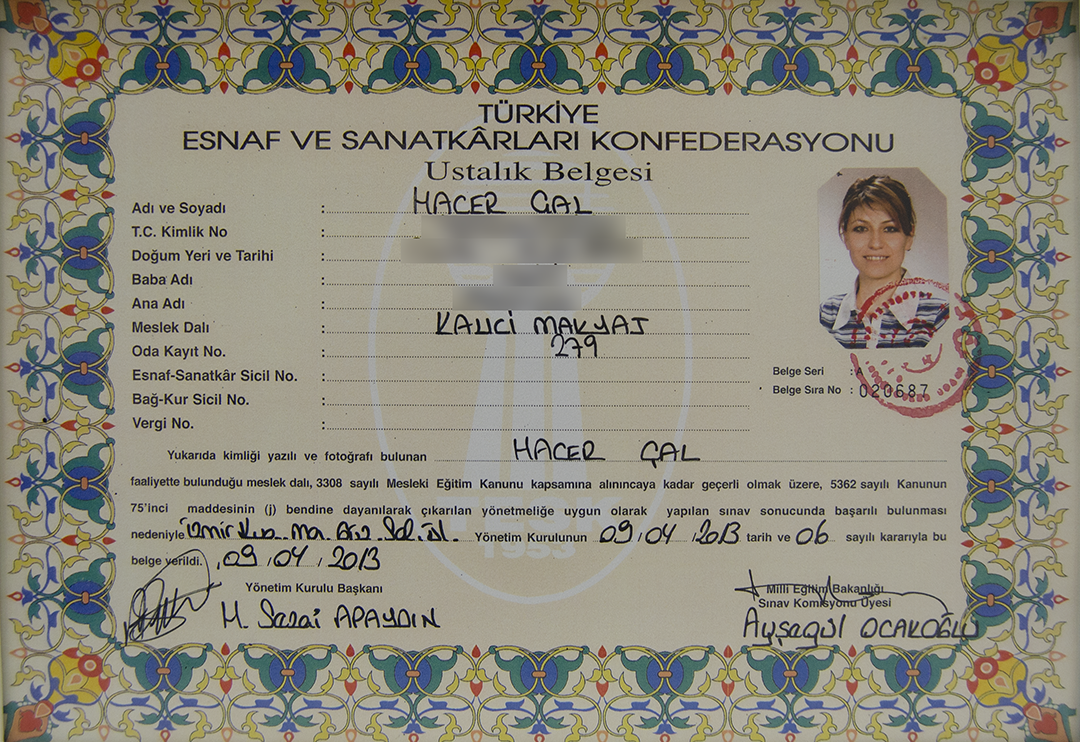 TÜRKİYE
ESNAF VE SANATKÂRLARI KONFEDERASYONU
Ustalık Belgesi
Adı ve Soyadı : HACER ÇAL
T.C. Kimlik No :
Doğum Yeri ve Tarihi :
Baba Adı :
Ana Adı :
Meslek Dalı : KALICI MAKYAJ
Oda Kayıt No. : 279
Esnaf-Sanatkâr Sicil No. :
Bağ-Kur Sicil No. :
Vergi No. :
Belge Seri : A
Belge Sıra No : 020687
Yukarıda kimliği yazılı ve fotoğrafı bulunan HACER ÇAL
faaliyette bulunduğu meslek dalı, 3308 sayılı Mesleki Eğitim Kanunu kapsamına alınıncaya kadar geçerli olmak üzere, 5362 sayılı Kanunun
75'inci maddesinin (j) bendine dayanılarak çıkarılan yönetmeliğe uygun olarak yapılan sınav sonucunda başarılı bulunması
nedeniyle İzmir Yönetim Kurulunun 09/04/2013 tarih ve 06 sayılı kararıyla bu
belge verildi. 09/04/2013
Yönetim Kurulu Başkanı
M. Sezai APAYDIN
Milli Eğitim Bakanlığı
Sınav Komisyonu Üyesi
Ayşegül OCAKOĞLU
TESK
1953